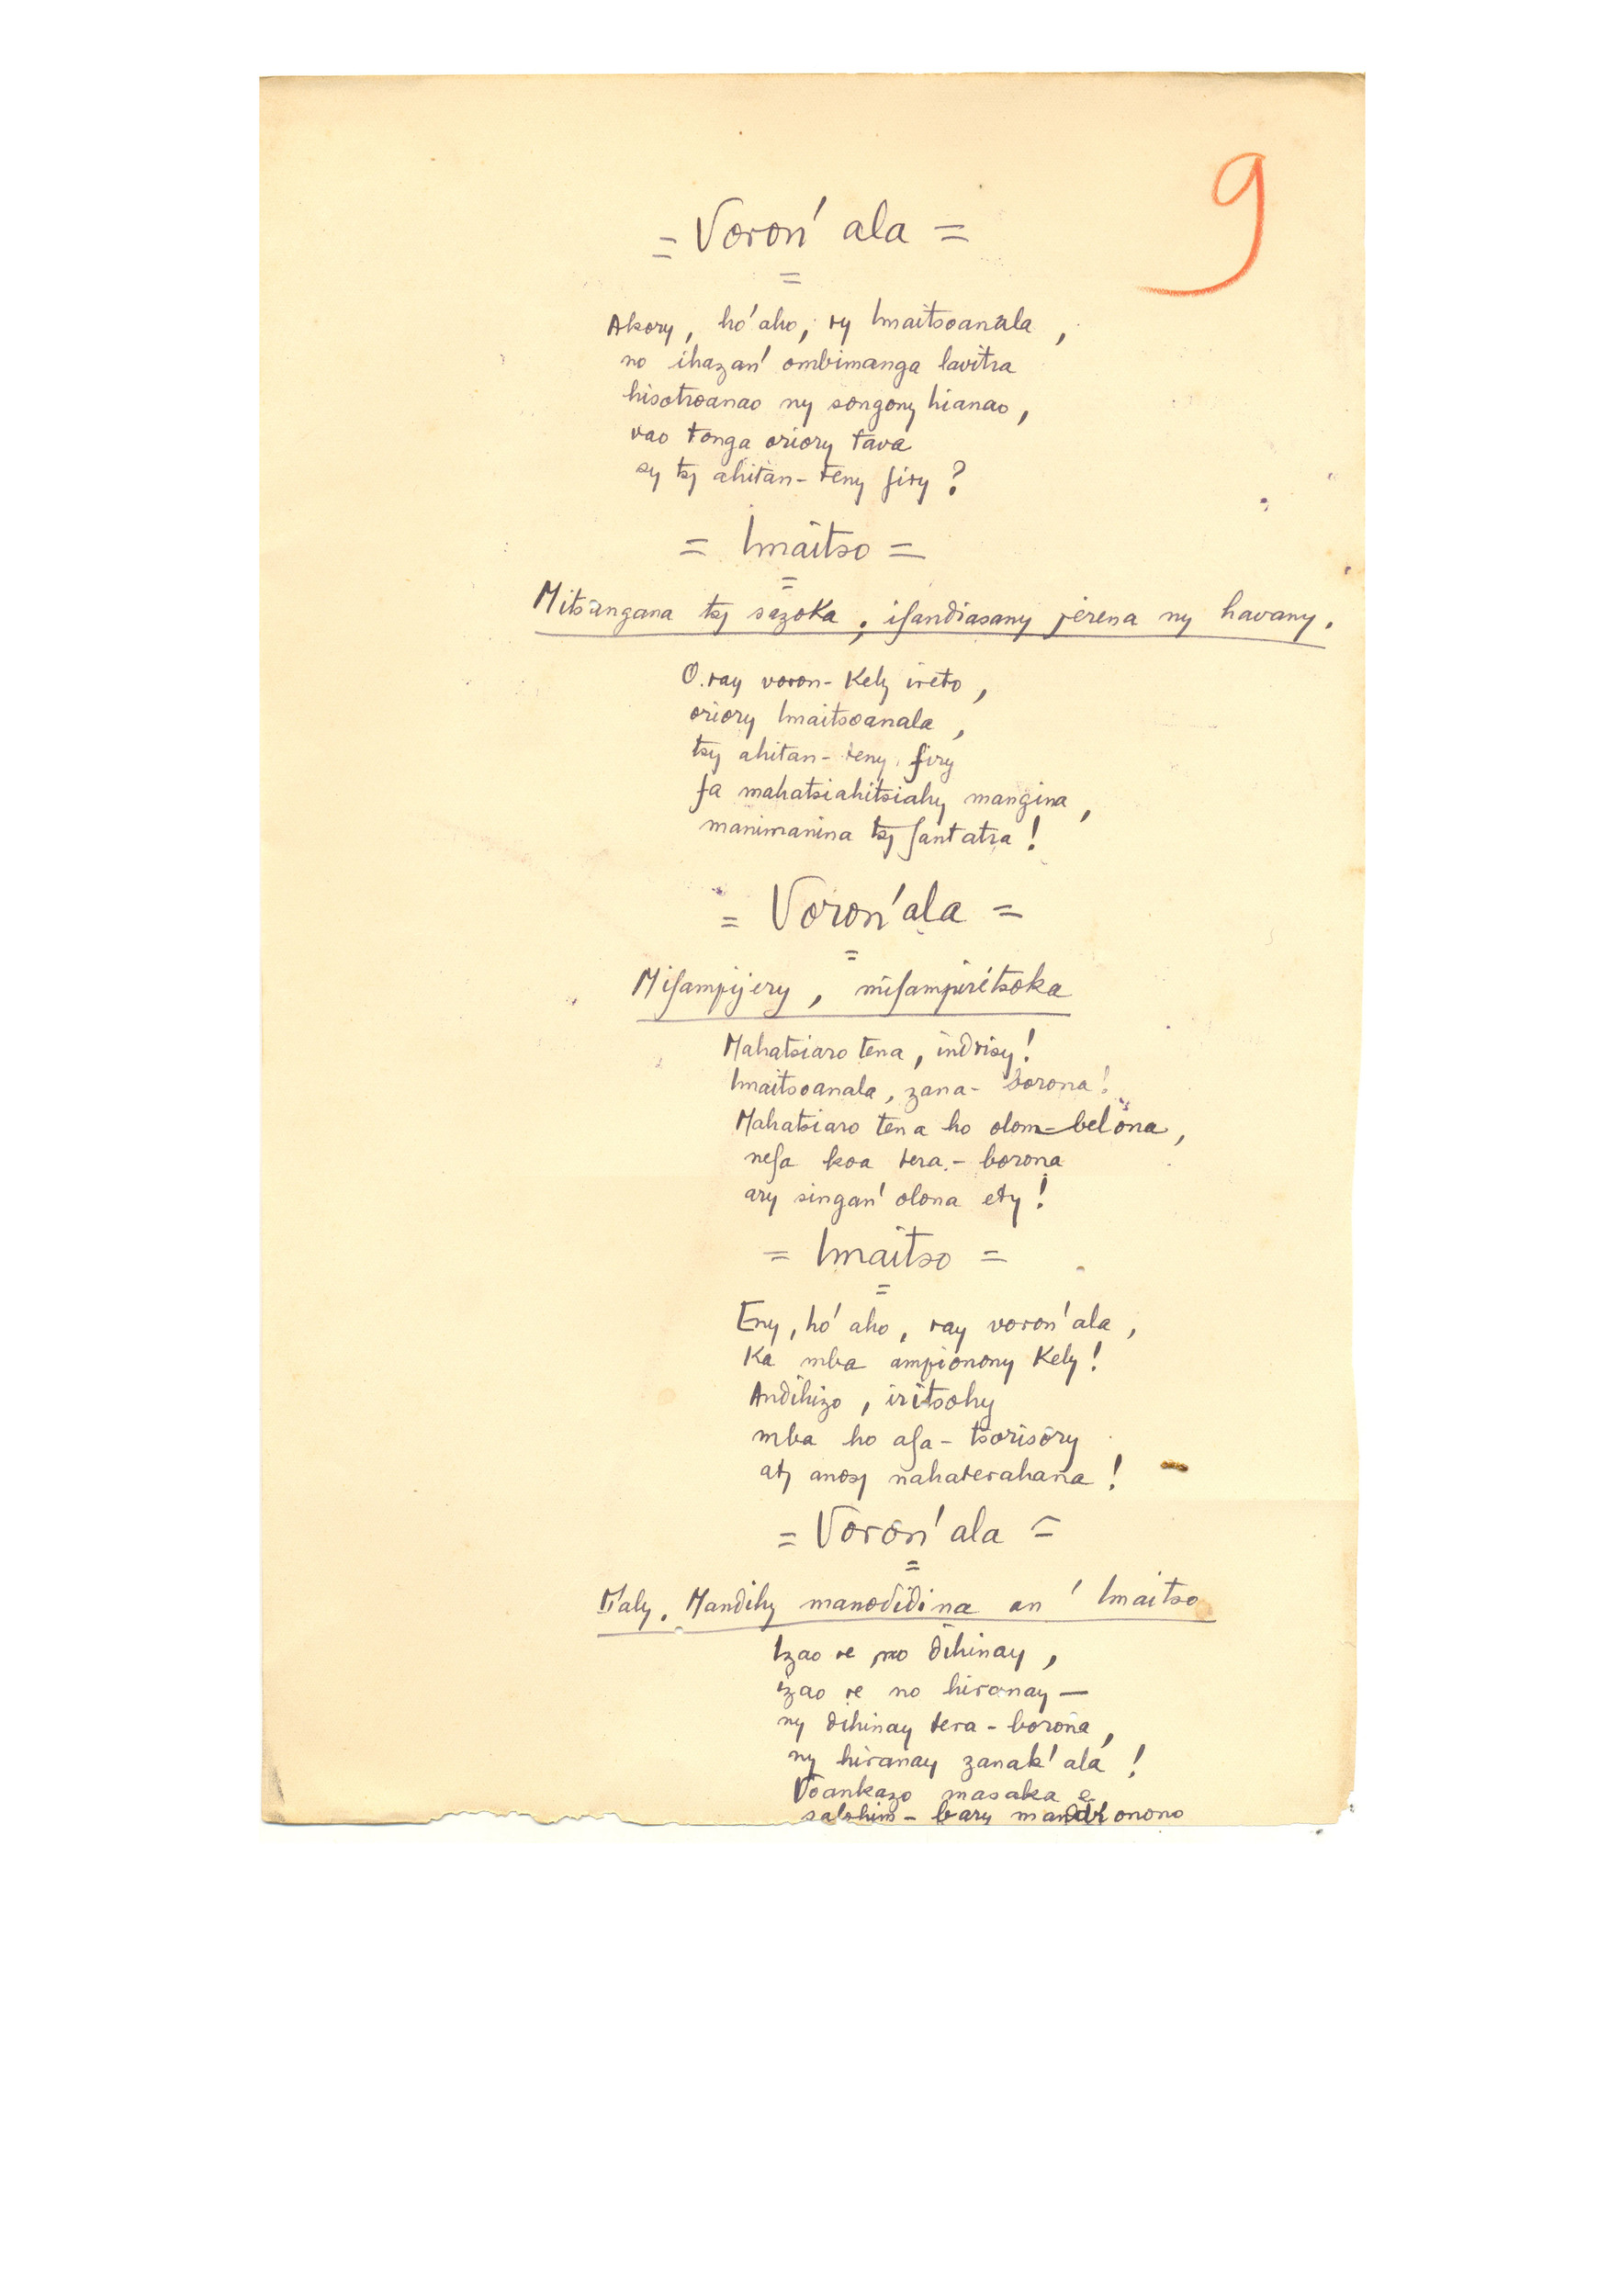 9
= Voron' ala =
=
Akory, hó aho, ry Imaitsoanala,
no ihazan' ombimanga lavitra
hisotroanao ny songony hianao,
vao tonga oriory tava
sy tsy ahitan-teny firy ?
= Imaitso =
=
Mitsangana tsy sazoka, ifandiasany jerena ny havany.
O. ray voron-Kely ireto,
oriory Imaitsoanala,
tsy ahitan-teny firy
fa mahatsiahitsiahy mangina,
manimanina tsy fantatra !
= Voron' ala =
=
Mifampijery, mifampiritsoka
Mahatsiaro tena, indrisy !
Imaitsoanala, zana-borona !
Mahatsiaro tena ho olom-belona,
nefa koa tera-borona
ary singan' olona ety !
= Imaitso =
=
Eny, hó aho, ray voron' ala,
Ka mba ampionony Kely !
Andihizo, iritsohy
mba ho afa-tsorisory
aty anosy nahaterahana !
= Voron' ala =
=
Tsaly. Mandihy manodidina an' Imaitso
Izao re no dihinay,
izao re no hiranay —
ny dihinay tera-borona,
ny hiranay zanak' ala !
Voankazo masaka e
salohim-bary mandronono